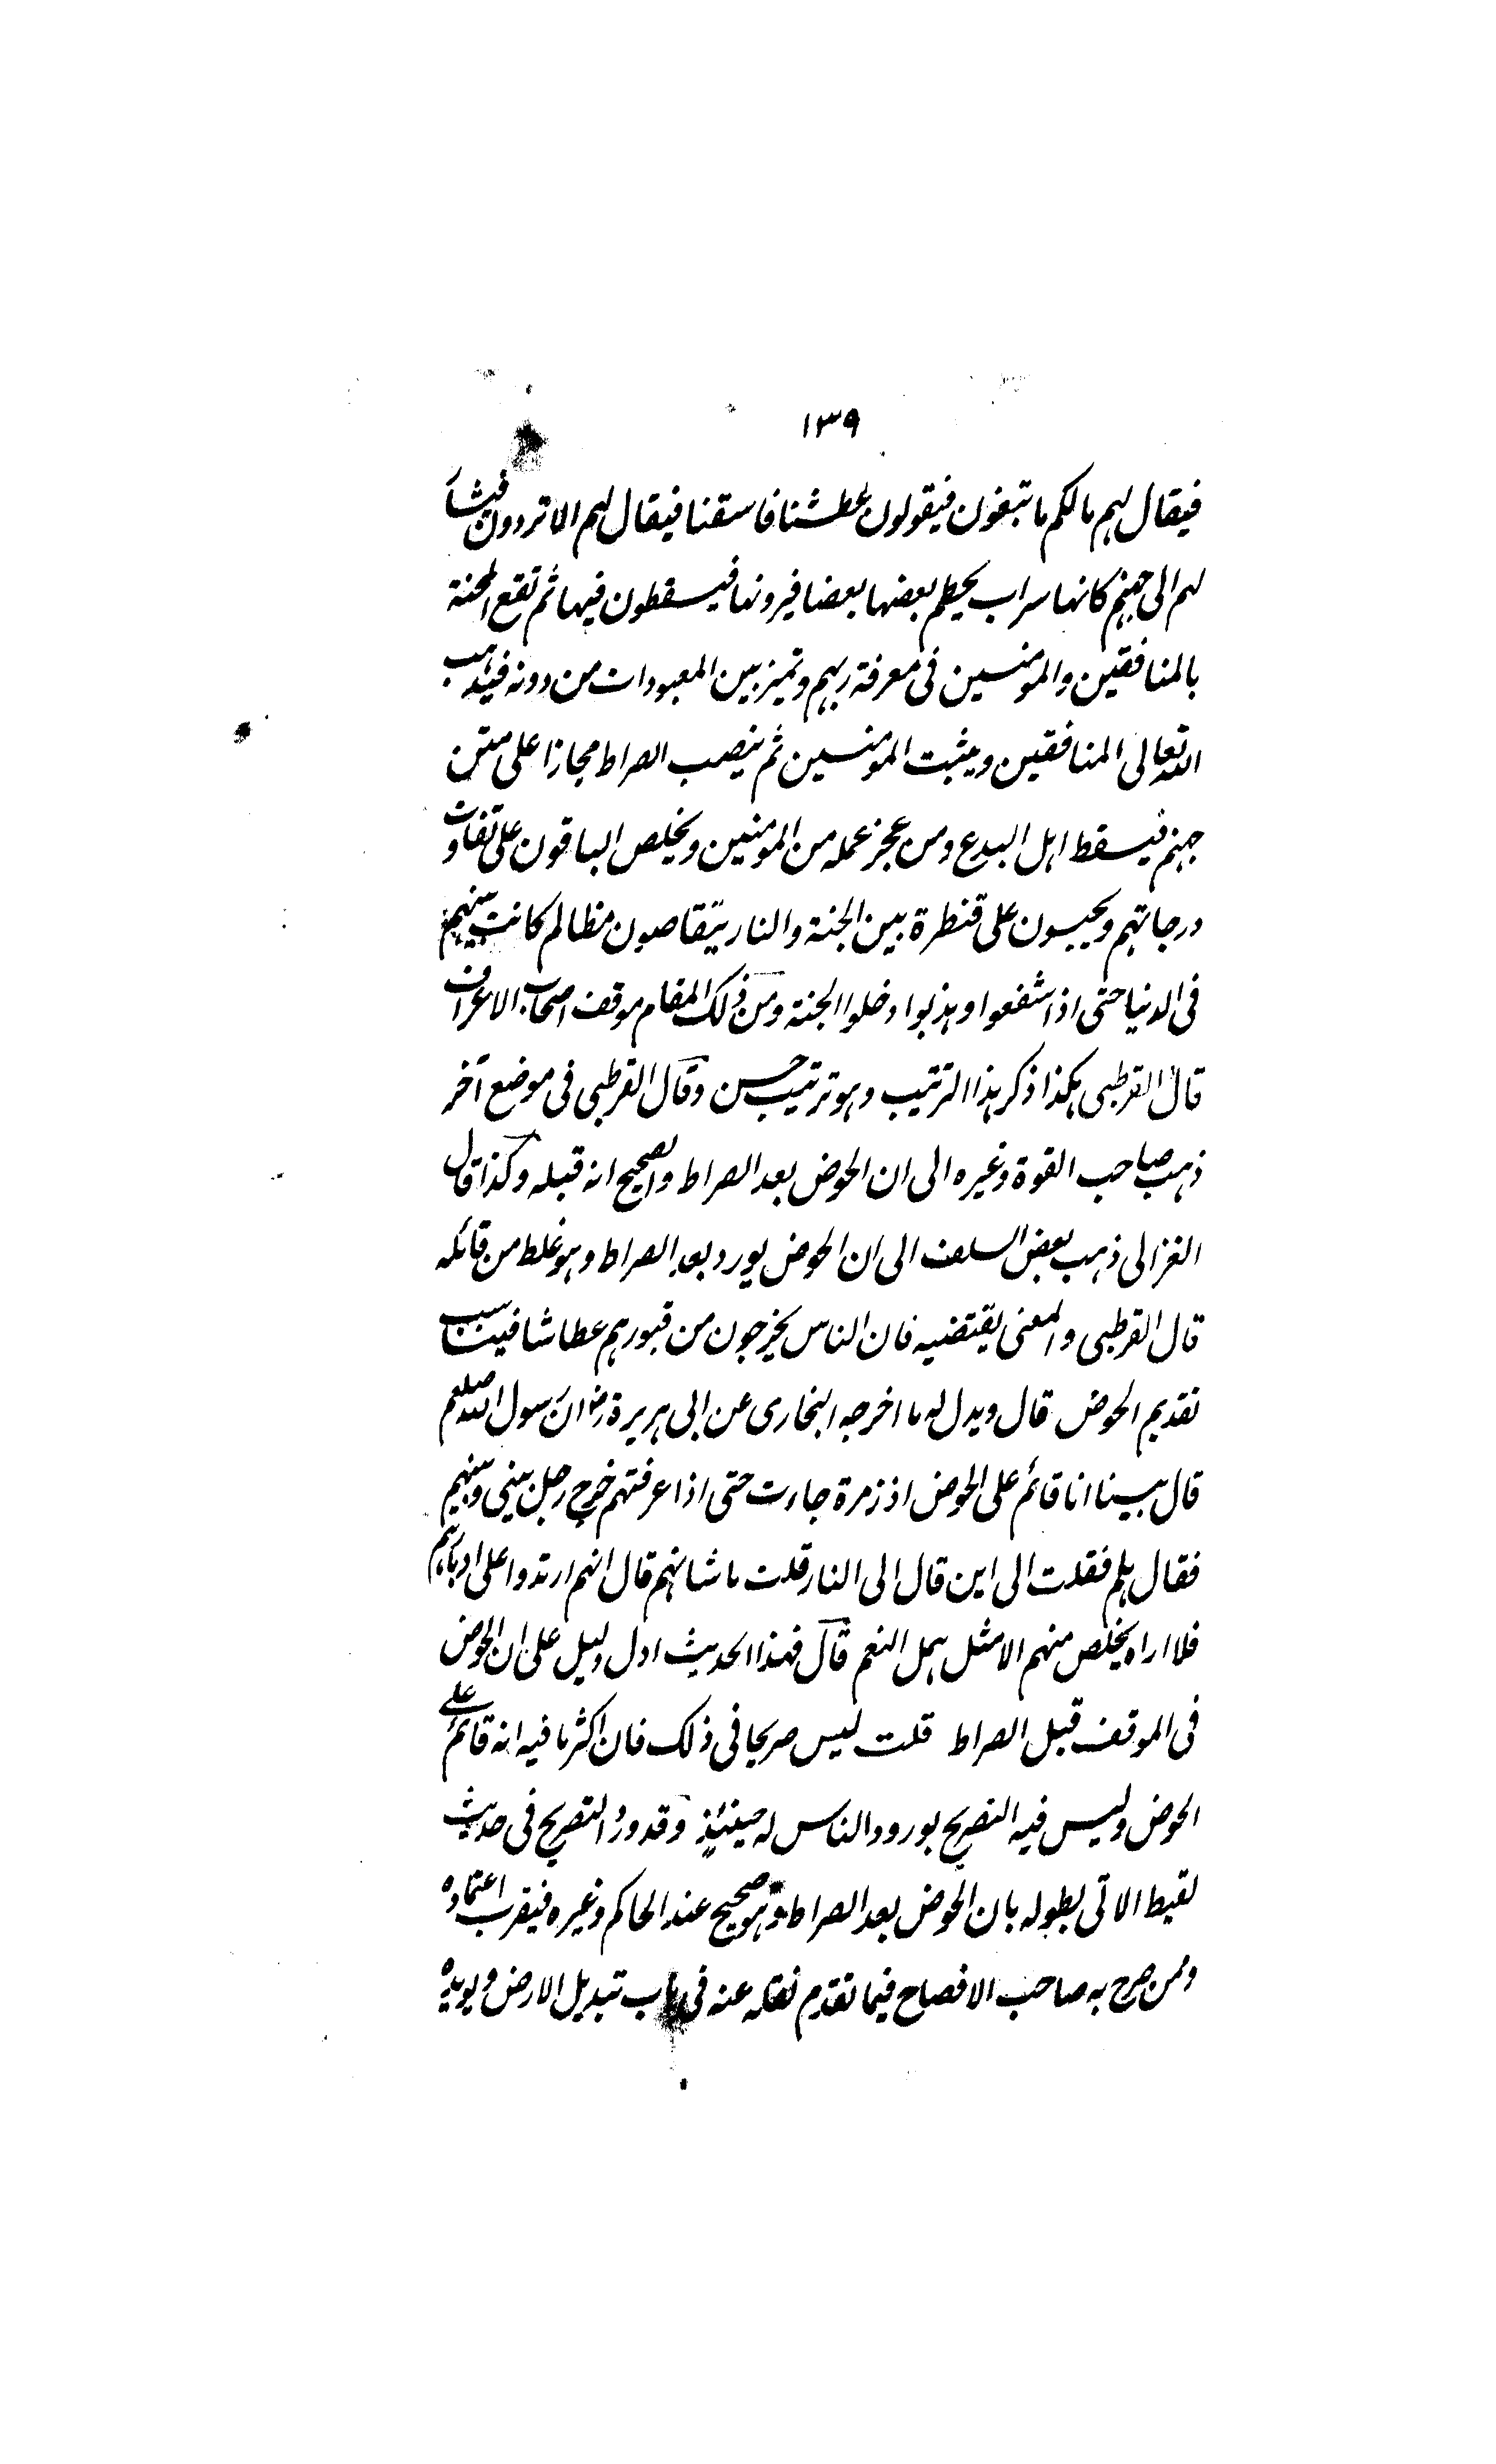 ١٣٩
فيقال لهم مالكم ما تبغون فيقولون عطشنا فاسقنا فيقال لهم الا تردون فيشار
لهم الى جهنم كانها سراب يحطم بعضها بعضا فيرونها فيسقطون فيها ثم تقع المحنة
بالمنافقين والمومنين فى معرفة ربهم وتميز بين المعبودات من دونه فيذهب
الله تعالى المنافقين ويثبت المومنين ثم ينصب الصراط مجازا على متن
جهنم فيسقط اهل البدع ومن عجز عمله من المومنين ويخلص الباقون على تفاوت
درجاتهم ويحبسون على قنطرة بين الجنة والنار يتقاصون مظالم كانت بينهم
فى الدنيا حتى اذا شفعوا وهذبوا دخلوا الجنة ومن ذلك المقام موقف اصحاب الاعراف
قال القرطبى هكذا ذكر هذا الترتيب وهو ترتيب حسن وقال القرطبى فى موضع آخر
ذهب صاحب القوة وغيره الى ان الحوض بعد الصراط والصحيح انه قبله وكذا قال
الغزالى ذهب بعض السلف الى ان الحوض يورد بعد الصراط وهو غلط من قائله
قال القرطبى والمعنى يقتضيه فان الناس يخرجون من قبورهم عطاشا فيناسب
تقديم الحوض قال ويدل له ما اخرجه البخارى عن ابى هريرة رض ان رسول الله صلعم
قال بينا انا قائم على الحوض اذ زمرة جاءت حتى اذا عرفتهم خرج رجل بينى وبينهم
فقال هلم فقلت الى اين قال الى النار قلت ما شانهم قال انهم ارتدوا على ادبارهم
فلا اراه يخلص منهم الا مثل همل النعم قال فهذا الحديث ادل دليل على ان الحوض
فى الموقف قبل الصراط قلت ليس صريحا فى ذلك فان اكثر ما فيه انه قائم على
الحوض وليس فيه التصريح بورود الناس له حينئذٍ وقد ورد التصريح فى حديث
لقيط الآتى بطوله بان الحوض بعد الصراط وهو صحيح عند الحاكم وغيره فيقرب اعتماده
وممن صرح به صاحب الافصاح فيما تقدم نقله عنه فى باب تبديل الارض ويويده